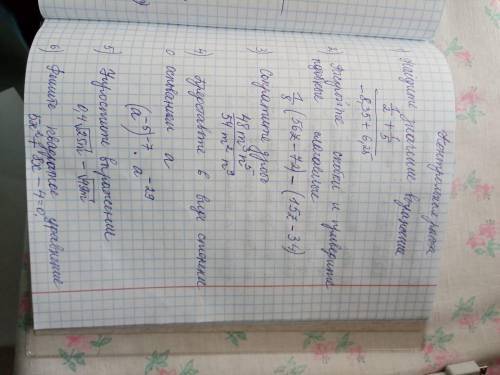 Контрольная работа
1) Найдите значение выражения
1/2 + 1/5
-8,35 + 6,25
2) Раскройте скобки и приведите
подобные слагаемые
1/8 (56x - 72) - (15x - 3y)
3) Сократите дробь
48m³n⁵
54m²n³
4) Представьте в виде степени
с основанием a
(a⁻⁵)⁷ · a⁻²⁹
5) Упростите выражение
6) Решите квадратное уравнение
5x² + 8x - 4 = 0